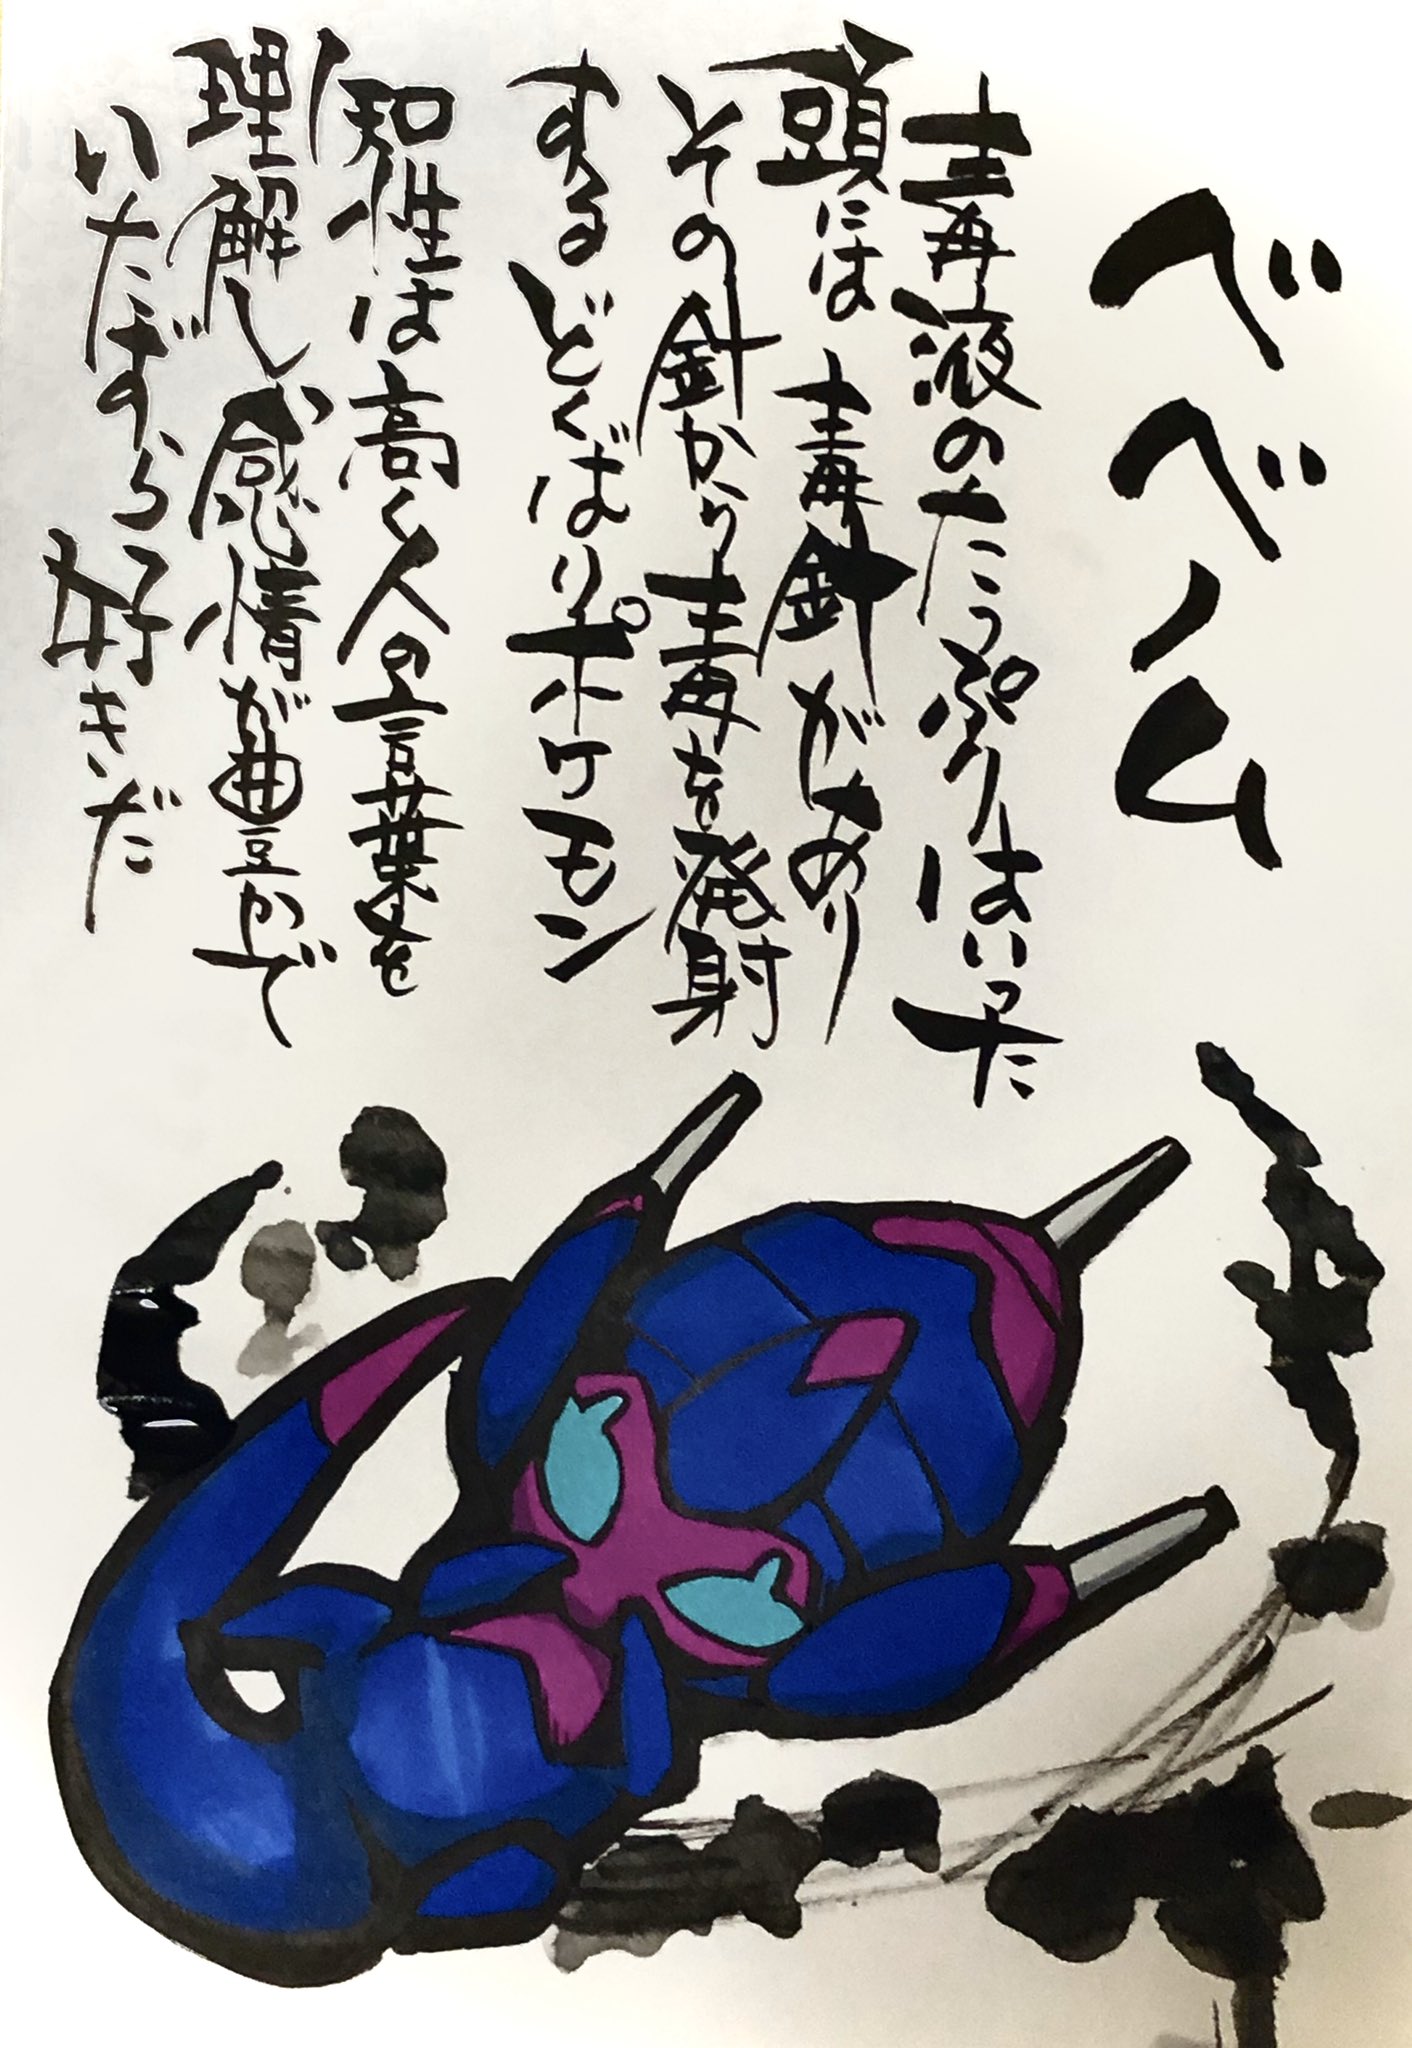 ベベノム
毒液のたっぷりはいった
頭には毒針があり
その針から毒を発射
するどくばりポケモン
知性は高く人の言葉を
理解し感情が豊かで
いたずら好きだ